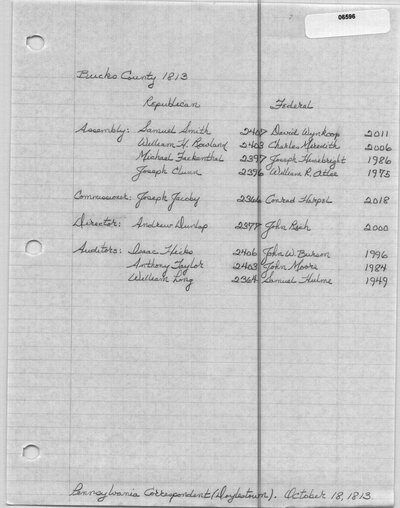 06596
Bucks County 1813
Republican Federal
Assembly: Samuel Smith 2407 David Wynkoop 2011
William H. Rowland 2403 Charles Meredith 2006
Michael Fackenthal 2397 Joseph Hunebright 1986
Joseph Clunn 2396 William R. Atlee 1975
Commissioner: Joseph Jacoby 2366 Conrad Harpel 2018
Director: Andrew Dunlap 2377 John Rich 2000
Auditors: Isaac Hicks 2406 John W. Burson 1996
Anthony Taylor 2403 John Moore 1984
William Long 2364 Samuel Hulme 1949
Pennsylvania Correspondent (Doylestown). October 18, 1813.